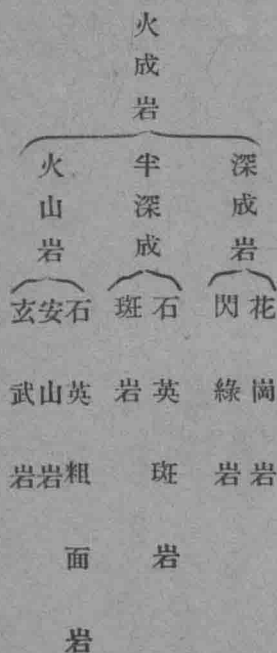 火成岩
深成岩
花崗岩
閃綠岩
半深成
石英斑岩
斑岩
火山岩
石英粗面岩
安山岩
玄武岩